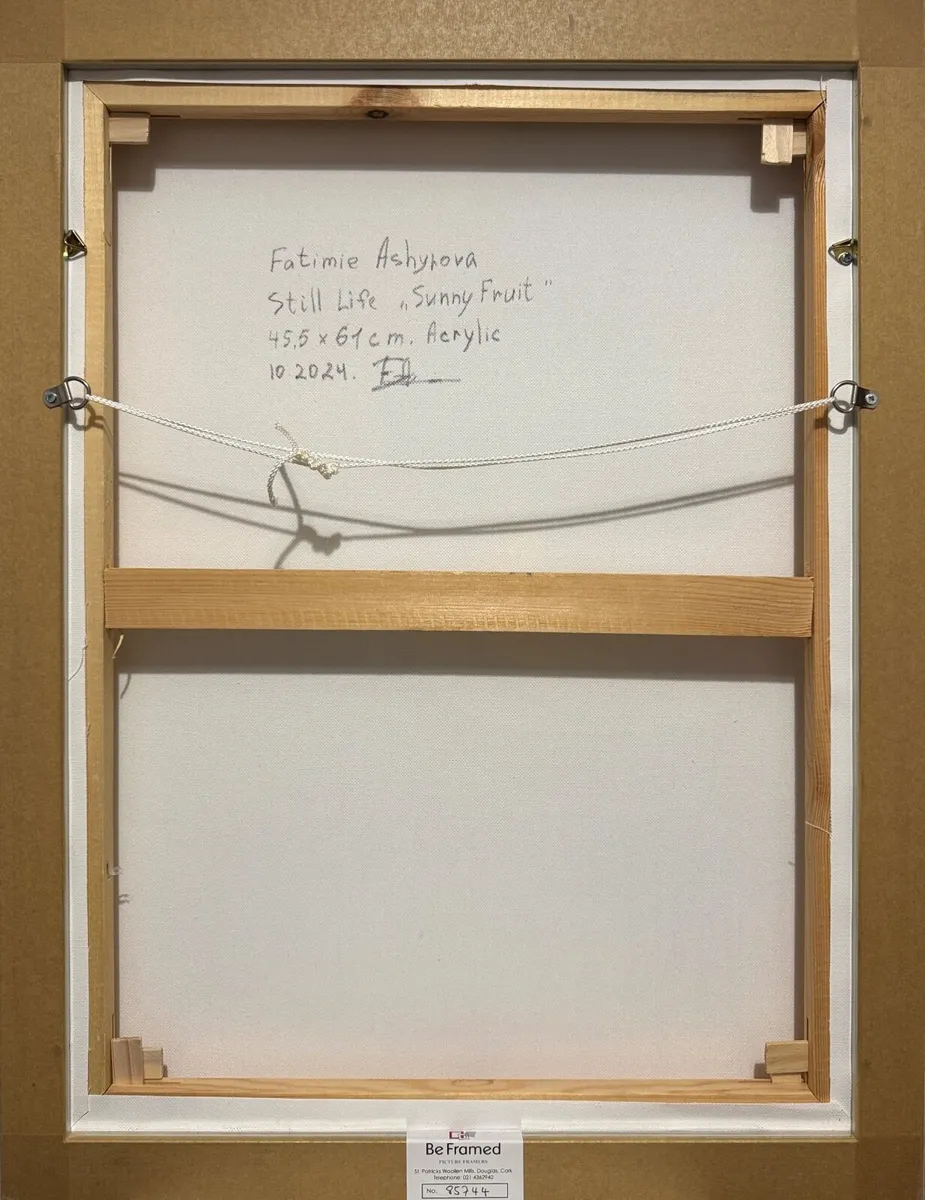 Fatimie Ashyrova
Still Life „Sunny Fruit"
45,5 x 61 cm. Acrylic
10.2024. FA
Be Framed
PICTURE FRAMERS
St. Patricks Woollen Mills, Douglas, Cork
Telephone: 021 4362942
No. 85744